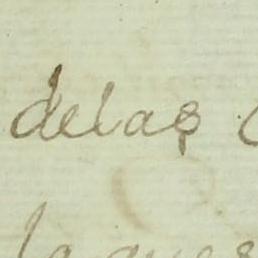 delas
la que